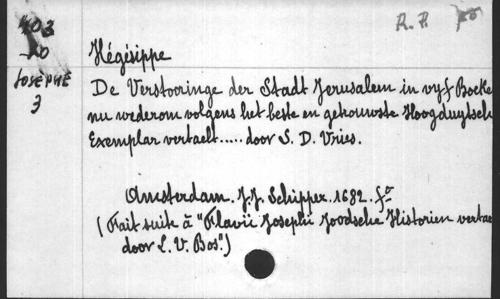 403
R. P.
Hégésippe
JOSEPHE
3
De Verstooringe der Stadt Jerusalem in vyf Boeke
nu wederom volgens het beste en getrouwste Hoogduytsch
Exemplar vertaelt..... door S. D. Vries.
Amsterdam. J.J. Schipper. 1682. fº
(Fait suite à "Flavii Josephi Joodsche Historien vertae
door L. V. Bos".)